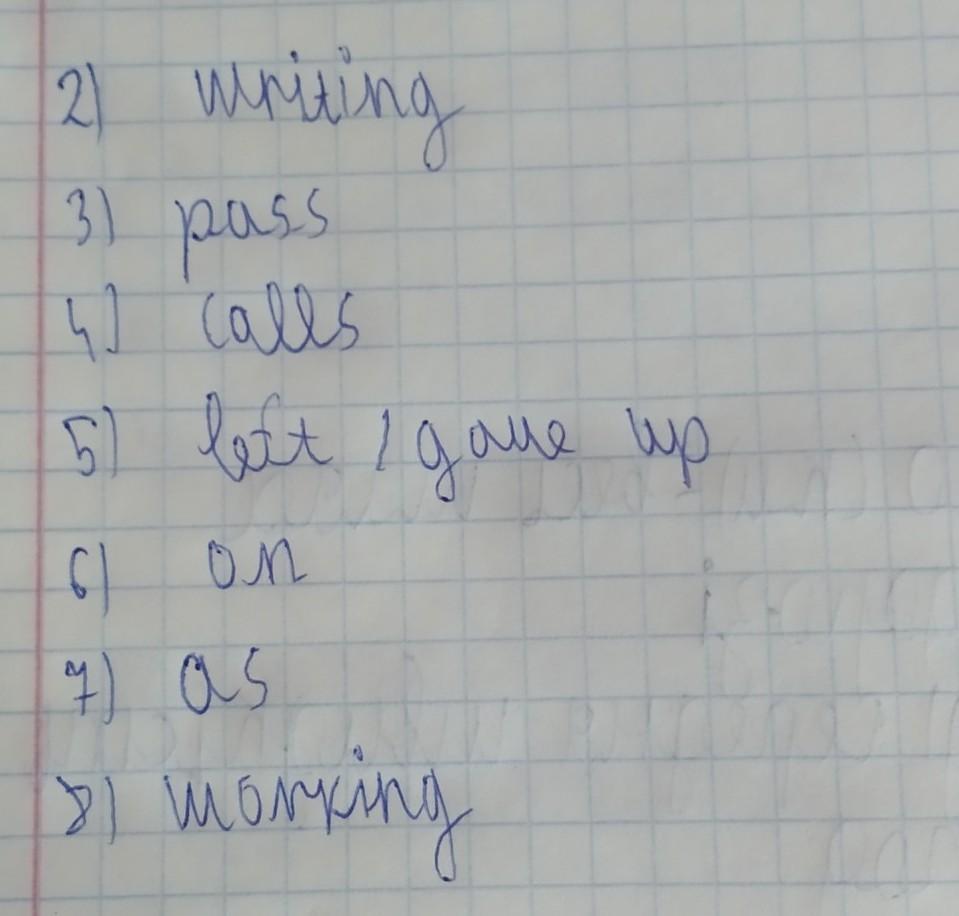 2) writing
3) pass
4) calls
5) left / gave up
6) on
7) as
8) working